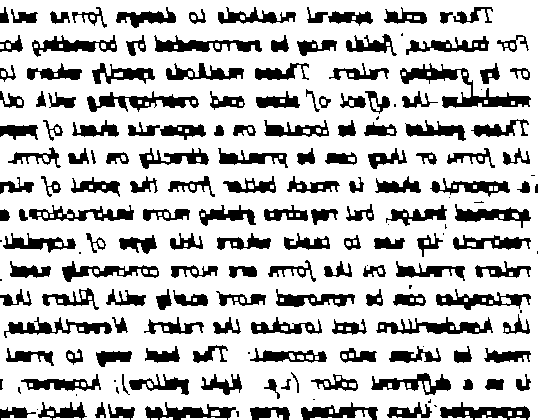 There exist several methods to design forms with
For instance, fields may be surrounded by bounding
or by guiding rulers. These methods specify where to
minimize the effect of skew and overlapping with
These guides can be located on a separate sheet of
the form or they can be printed directly on the form.
a separate sheet is much better from the point of
scanned image, but requires giving more instructions
restricts its use to tasks where this type of
rulers printed on the form are more commonly used
rectangles can be removed more easily with filters
the handwritten text touches the rulers. Nevertheless,
must be taken into account: The best way to print
is in a different color (i.e. light yellow); however,
expensive than printing gray rectangles with